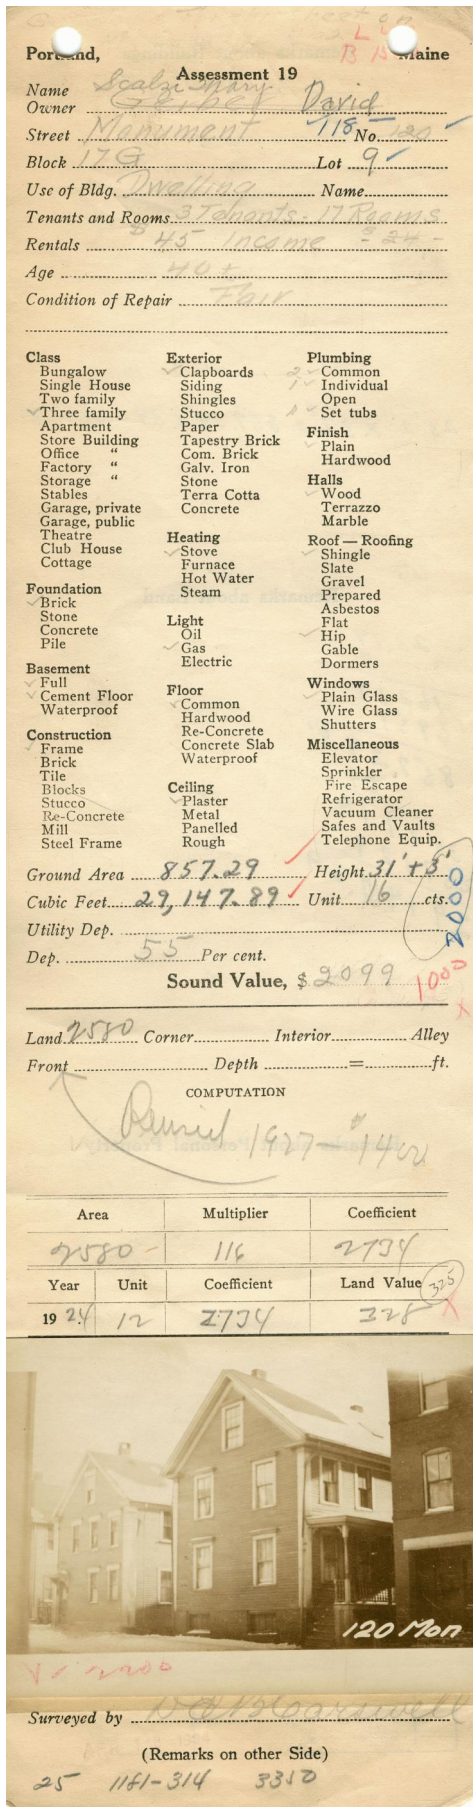 L
B 15
Portland, Maine
Assessment 19
Name Scalzi Mary
Owner Gerber David
Street Monument 118 No. 120
Block 17 G Lot 9
Use of Bldg. Dwelling Name
Tenants and Rooms 3 Tenants - 17 Rooms
Rentals $45 Income $24
Age 40 +
Condition of Repair Fair
Class
Bungalow
Single House
Two family
Three family
Apartment
Store Building
Office "
Factory "
Storage "
Stables
Garage, private
Garage, public
Theatre
Club House
Cottage
Foundation
Brick
Stone
Concrete
Pile
Basement
Full
Cement Floor
Waterproof
Construction
Frame
Brick
Tile
Blocks
Stucco
Re-Concrete
Mill
Steel Frame
Exterior
Clapboards
Siding
Shingles
Stucco
Paper
Tapestry Brick
Com. Brick
Galv. Iron
Stone
Terra Cotta
Concrete
Heating
Stove
Furnace
Hot Water
Steam
Light
Oil
Gas
Electric
Floor
Common
Hardwood
Re-Concrete
Concrete Slab
Waterproof
Ceiling
Plaster
Metal
Panelled
Rough
Plumbing
2 Common
1 Individual
Open
1 Set tubs
Finish
Plain
Hardwood
Halls
Wood
Terrazzo
Marble
Roof — Roofing
Shingle
Slate
Gravel
Prepared
Asbestos
Flat
Hip
Gable
Dormers
Windows
Plain Glass
Wire Glass
Shutters
Miscellaneous
Elevator
Sprinkler
Fire Escape
Refrigerator
Vacuum Cleaner
Safes and Vaults
Telephone Equip.
Ground Area 857.29 Height 31' + 3'
Cubic Feet 29,147.89 Unit 16 cts.
2000
Utility Dep.
Dep. 55 Per cent.
Sound Value, $ 2099
1000 x
Land 2580 Corner Interior Alley
Front Depth = ft.
COMPUTATION
Revised 1927 - $1400
Area Multiplier Coefficient
2580 - 116 2734
Year Unit Coefficient Land Value 325
1924 12 2734 328 X
120 Mon
2200
Surveyed by
(Remarks on other Side)
25 1181-314 3350